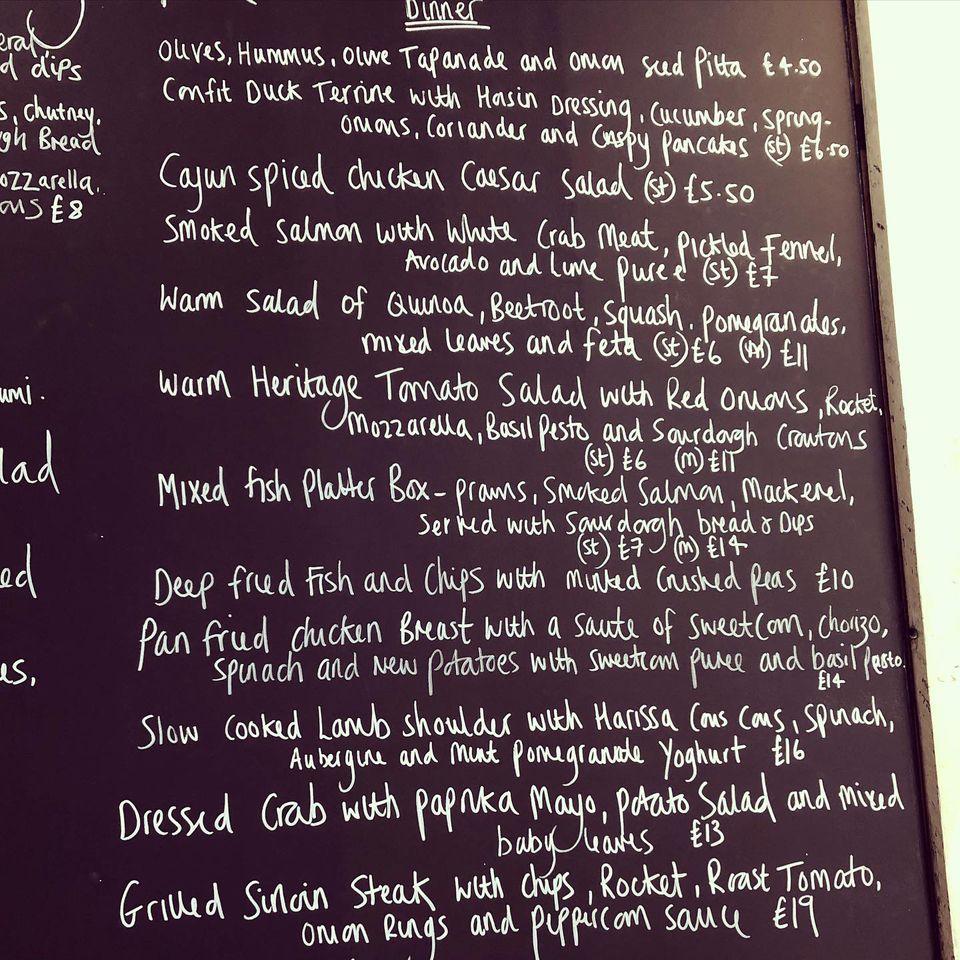 Dinner
Olives, Hummus, Olive Tapanade and onion seed Pitta £4.50
Confit Duck Terrine with Hosin Dressing, Cucumber, spring-
onions, Coriander and Crispy pancakes (st) £6.50
Cajun spiced chicken Caesar Salad (st) £5.50
Smoked Salmon with White Crab Meat, pickled Fennel,
Avocado and Lime puree (st) £7
Warm Salad of Quinoa, Beetroot, squash, pomegranates,
mixed leaves and feta (st) £6 (M) £11
Warm Heritage Tomato Salad with Red onions, Rocket,
Mozzarella, Basil Pesto and Sourdorgh Croutons
(st) £6 (m) £11
Mixed fish Platter Box - prawns, Smoked Salmon, Mackerel,
Served with Sourdorgh bread & Dips
(st) £7 (m) £14
Deep fried Fish and Chips with minted Crushed peas £10
Pan fried chicken Breast with a saute of sweetcorn, chorizo,
spinach and New potatoes with sweetcorn puree and basil pesto
£14
Slow Cooked Lamb shoulder with Harissa Cous Cous, spinach,
Aubergine and mint pomegranate Yoghurt £16
Dressed Crab with paprika Mayo, potato Salad and mixed
baby leaves £13
Grilled Sirloin Steak with chips, Rocket, Roast Tomato,
onion Rings and peppercorn sauce £19
d dips
s, chutney,
gh Bread
ozzarella.
ons £8
umi.
lad
ed
es,